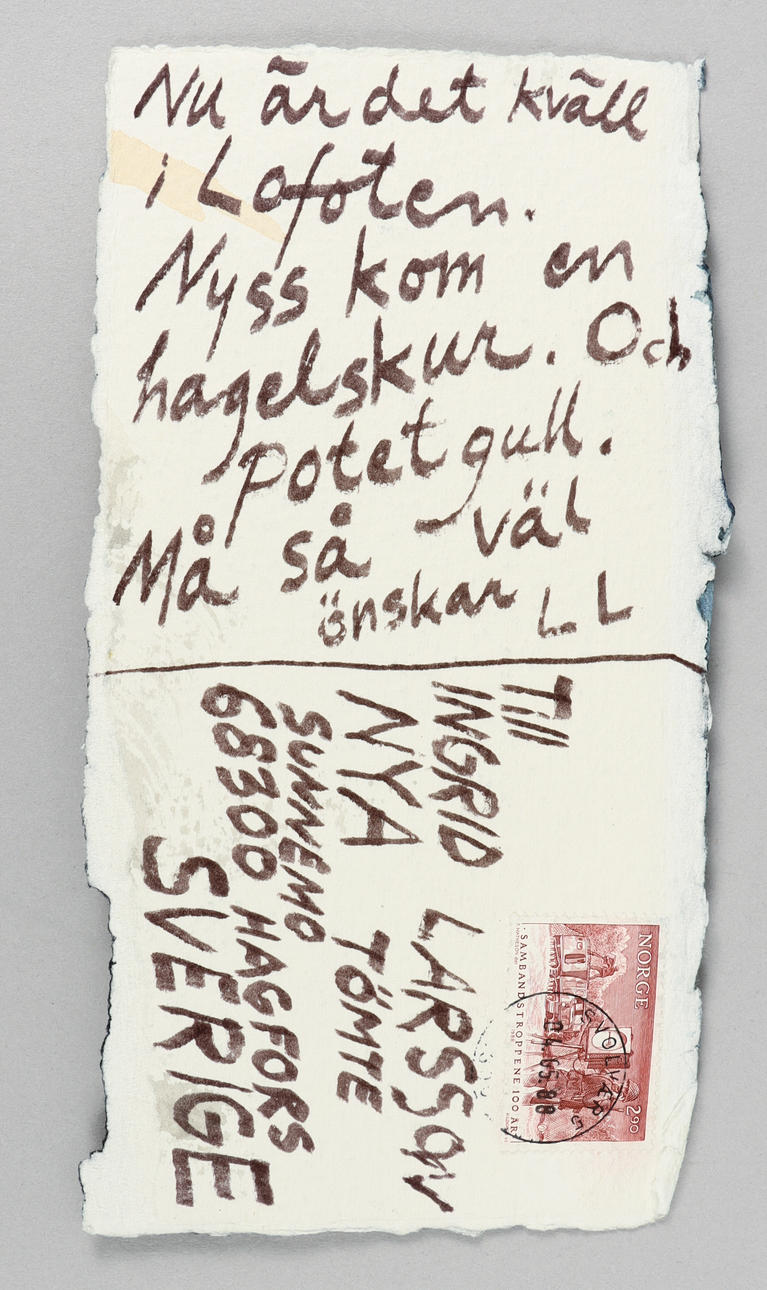 Nu är det kväll
i Lofoten.
Nyss kom en
hagelskur. Och
potetgull.
Må så väl
önskar LL
Till
INGRID LARSSON
NYA TÖMTE
SUNNEMO
68300 HAGFORS
SVERIGE
NORGE
290
SAMBANDSTROPPENE 100 ÅR
SVOLVÆR